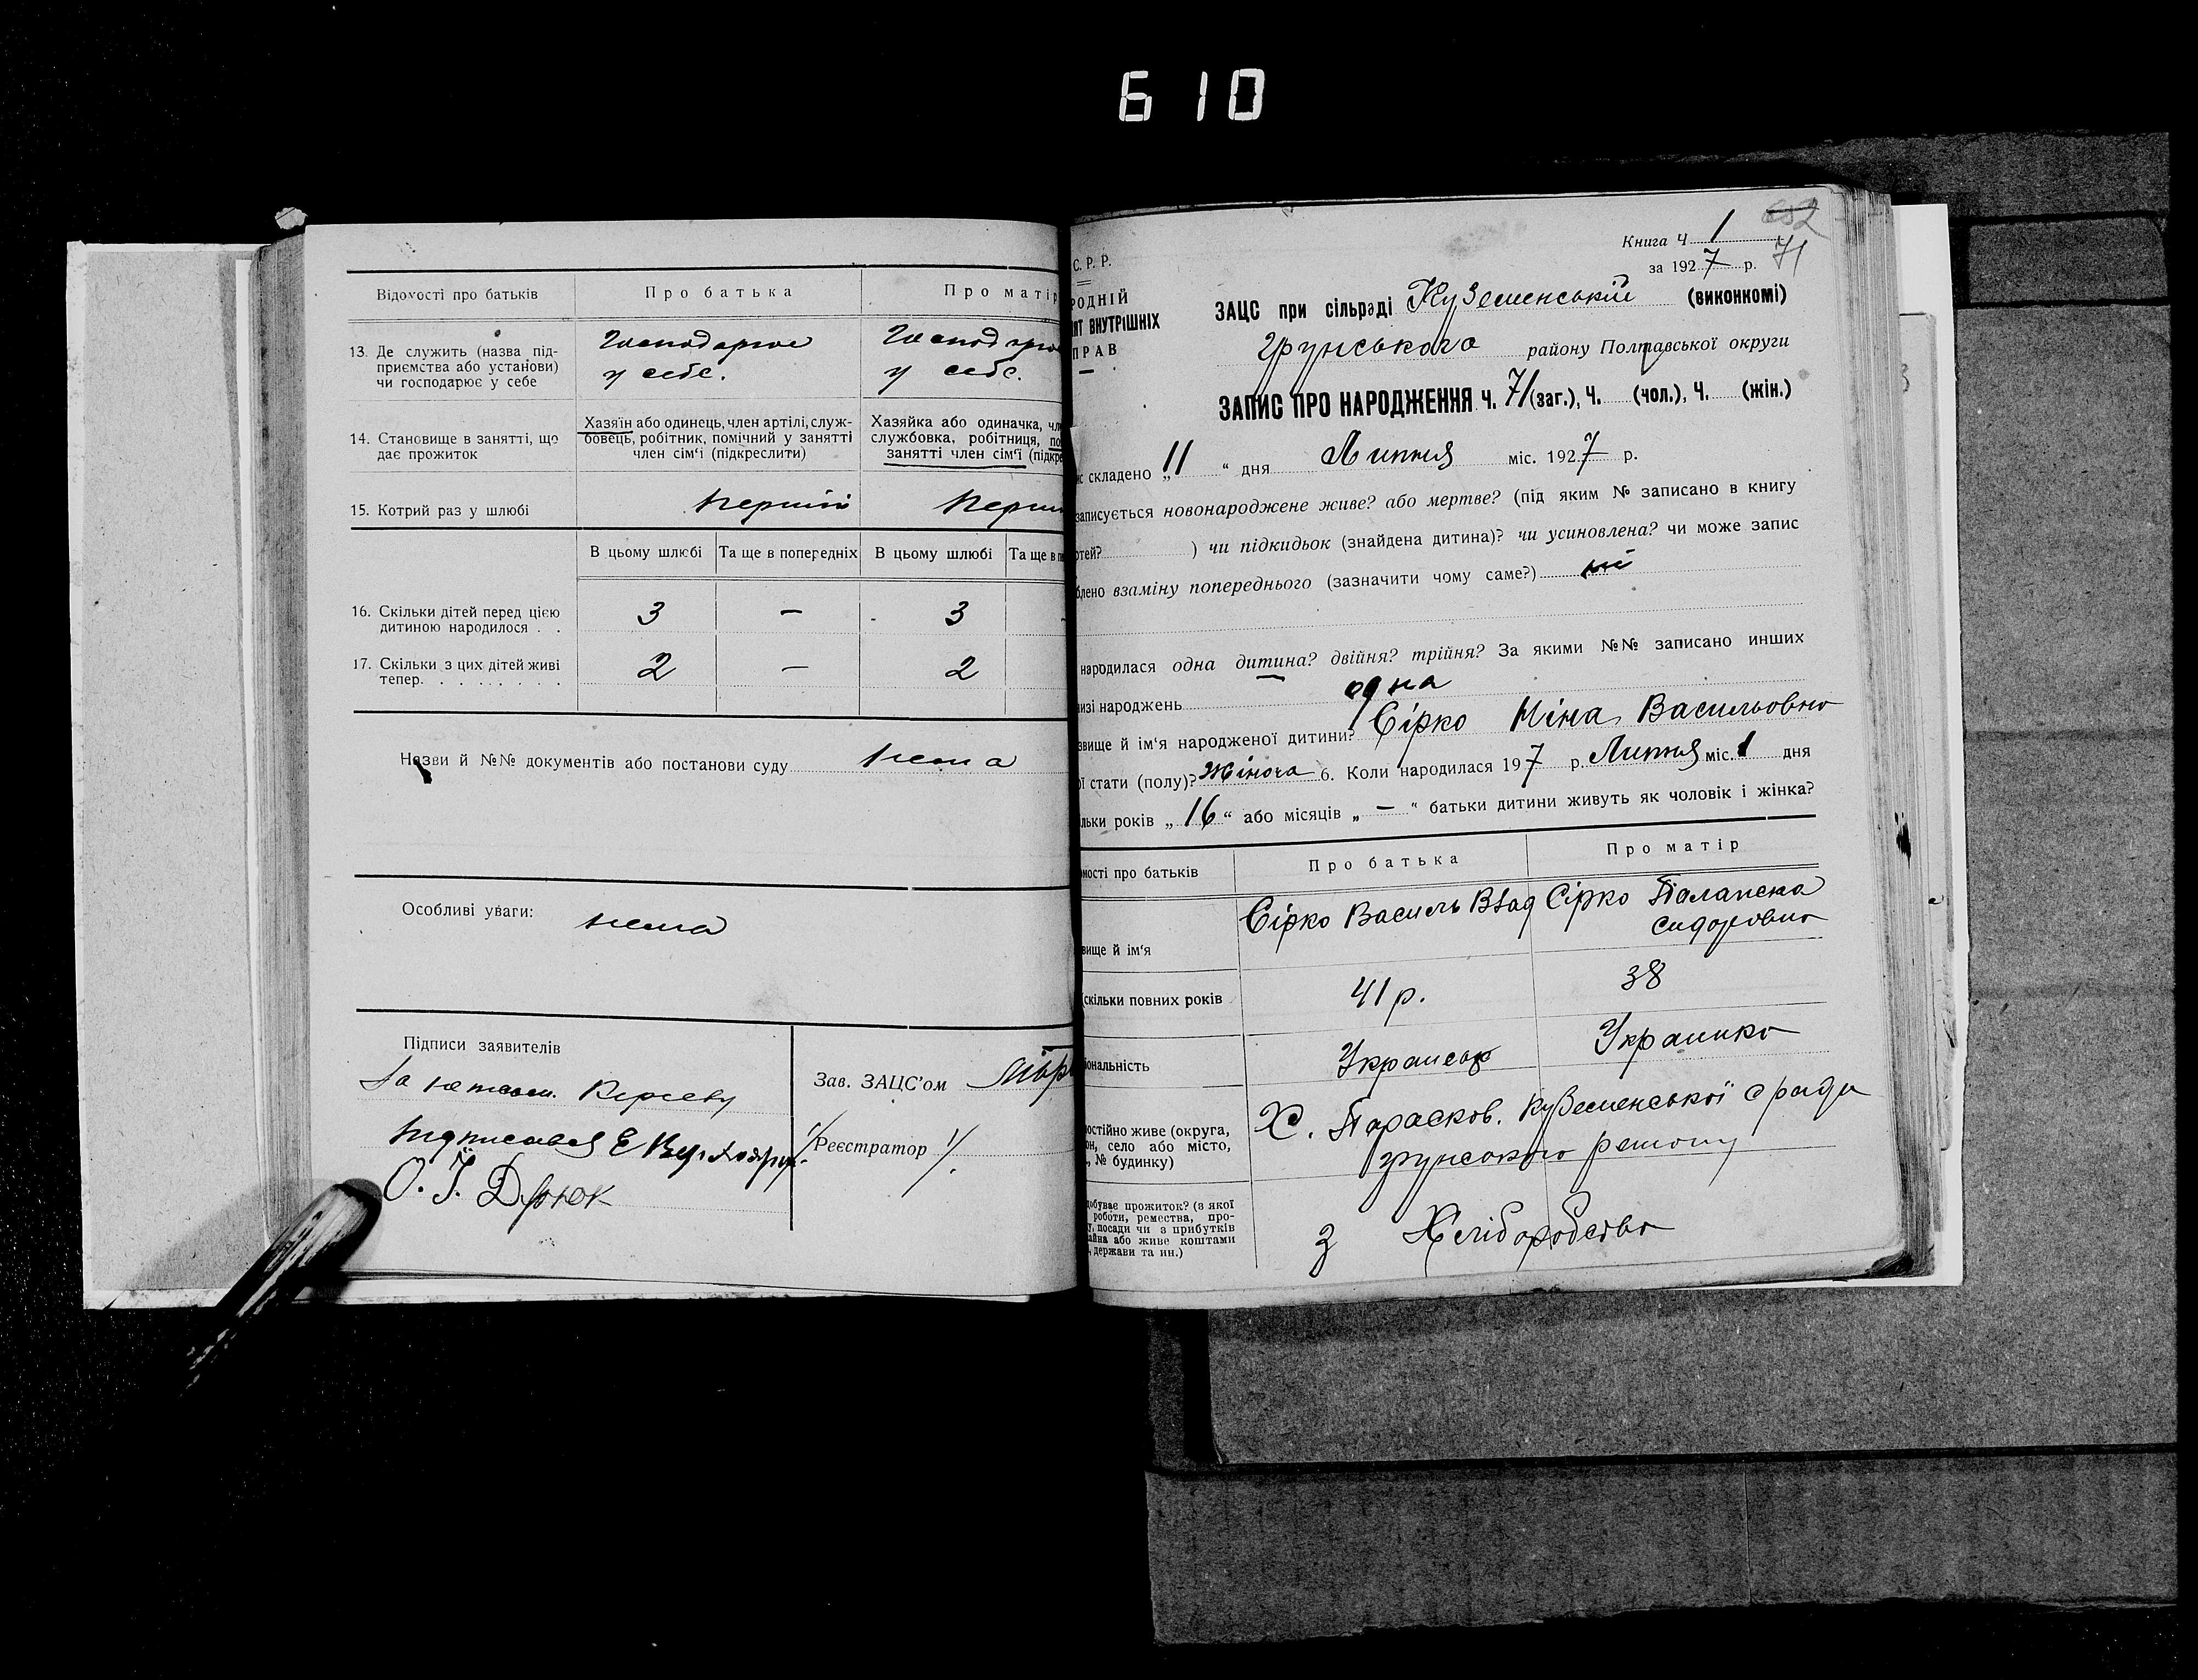 610
Відомості про батьків
Про батька
Про матір
13. Де служить (назва під-
приємства або установи)
чи господарює у себе
Господарює
у себе.
Господарює
у себе.
14. Становище в занятті, що
дає прожиток
Хазяїн або одинець, член артілі, служ-
бовець, робітник, помічний у занятті
член сім'ї (підкреслити)
Хазяйка або одиначка, чл
службовка, робітниця, по
занятті член сім'ї (підкре
15. Котрий раз у шлюбі
перший
Перши
В цьому шлюбі
Та ще в попередніх
В цьому шлюбі
Та ще в п
16. Скільки дітей перед цією
дитиною народилося . .
3 — 3
17. Скільки з цих дітей живі
тепер. . . . . . . .
2 — 2
Назви й №№ документів або постанови суду нема
Особливі уваги:
нема
Підписи заявителів
За
О. Ї. Дрюк
Зав. ЗАЦС'ом
Реєстратор
652
71
Книга Ч 1
за 1927 р.
С. Р. Р.
РОДНІЙ
ЯТ ВНУТРІШНІХ
ПРАВ
ЗАЦС при сільраді Куземенській (виконкомі)
Грунського району Полтавської округи
ЗАПИС ПРО НАРОДЖЕННЯ ч. 71 (заг.), Ч. (чол.), Ч. (жін.)
с складено „11“ дня Липня міс. 1927 р.
записується новонароджене живе? або мертве? (під яким № записано в книгу
ртей? ) чи підкидьок (знайдена дитина)? чи усиновлена? чи може запис
блено взаміну попереднього (зазначити чому саме?) ні
народилася одна дитина? двійня? трійня? За якими №№ записано инших
изі народжень одна
звище й ім'я народженої дитини? Сірко Ніна Васильовно
ої стати (полу)? Жіноча 6. Коли народилася 197 р. Липня міс. 1 дня
льки років „16“ або місяців „—“ батьки дитини живуть як чоловік і жінка?
мості про батьків
Про батька
Про матір
вище й ім'я
Сірко Василь Влад
Сірко Палажка
Сидоровно
скільки повних років
41 р.
38
іональність
Українець
Українко
остійно живе (округа,
он, село або місто,
, № будинку)
Х. Парасков. Куземенської с ради
грунського району
добуває прожиток? (з якої
роботи, ремества, про-
у, посади чи з прибутків
айна або живе коштами
, держави та ин.)
З Хліборобство